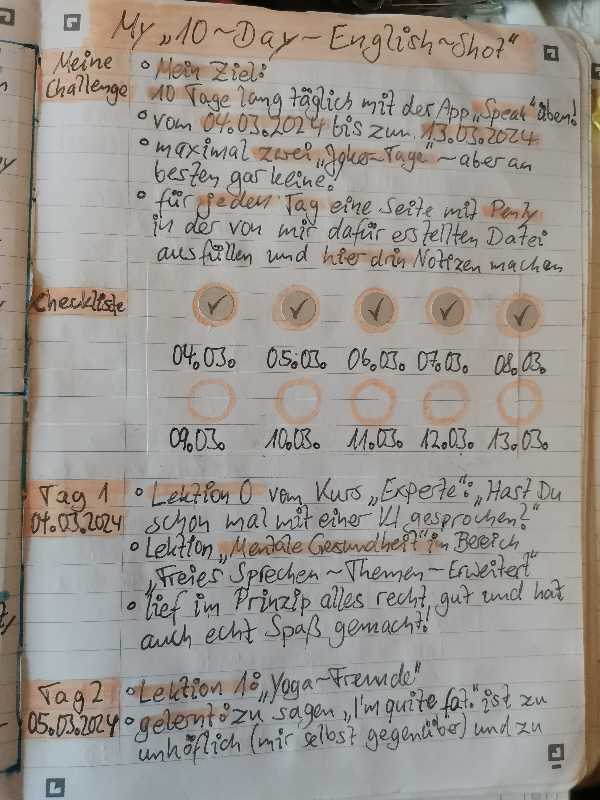 My „10~Day~English~Shot“
Meine Challenge
° Mein Ziel:
10 Tage lang täglich mit der App „Speak“ üben!
° vom 04.03.2024 bis zum 13.03.2024
° maximal zwei „Joker-Tage“ ~ aber am
besten gar keine!
° für jeden Tag eine Seite mit Penly
in der von mir dafür erstellten Datei
ausfüllen und hier drin Notizen machen
Checkliste
04.03. 05.03. 06.03. 07.03. 08.03.
09.03. 10.03. 11.03. 12.03. 13.03.
Tag 1
04.03.2024
° Lektion 0 vom Kurs „Experte“: „Hast Du
schon mal mit einer KI gesprochen?“
° Lektion „Mentale Gesundheit“ im Bereich
„Freies Sprechen ~ Themen ~ Erweitert“
° lief im Prinzip alles recht gut und hat
auch echt Spaß gemacht!
Tag 2
05.03.2024
° Lektion 1: „Yoga~Freunde“
° gelernt: zu sagen „I'm quite fat.“ ist zu
unhöflich (mir selbst gegenüber) und zu